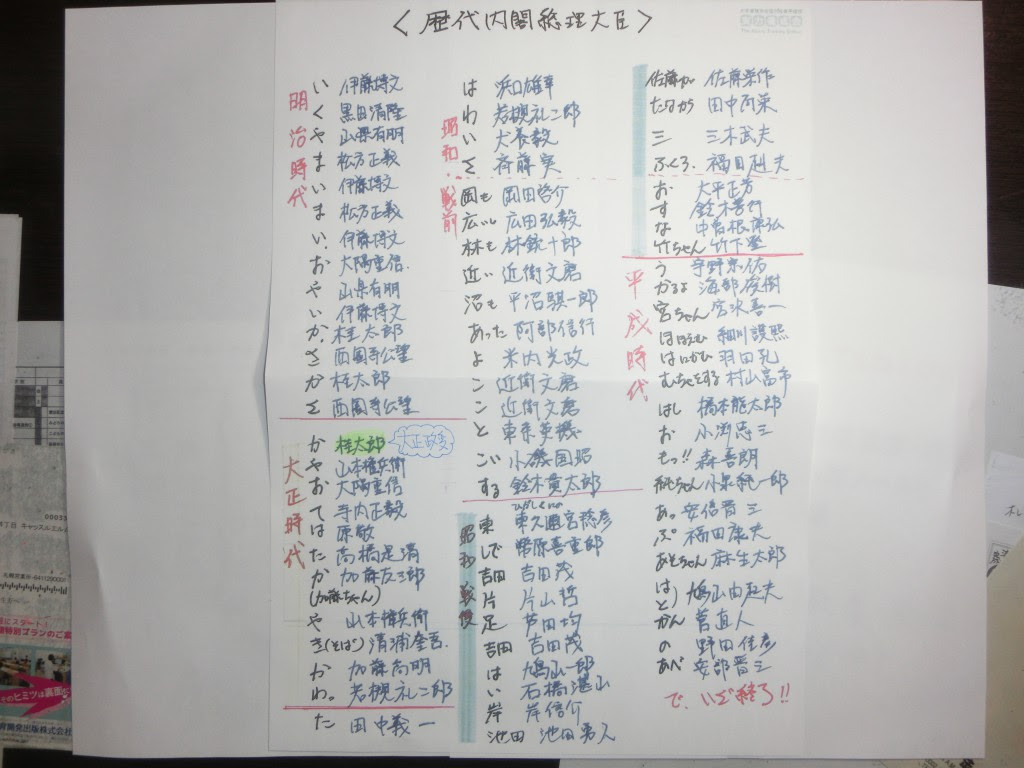 〈歴代内閣総理大臣〉
明治時代
い 伊藤博文
く 黒田清隆
や 山県有朋
ま 松方正義
い 伊藤博文
ま 松方正義
い、 伊藤博文
お 大隈重信.
や 山県有朋
い 伊藤博文
か、 桂太郎
さ 西園寺公望
か 桂太郎
さ 西園寺公望
大正時代
か 桂太郎 大正政変
や 山本権兵衛
お 大隈重信
て 寺内正毅
は 原敬
た 高橋是清
か 加藤友三郎
(加藤ちゃん)
や 山本権兵衛
き(そば) 清浦奎吾.
か 加藤高明
わ。 若槻礼二郎
た 田中義一
昭和・戦前
は 浜口雄幸
わ 若槻礼二郎
い 犬養毅
さ 斉藤実
岡も 岡田啓介
広いし 広田弘毅
林も 林銑十郎
近い 近衛文麿
沼も 平沼騏一郎
あった 阿部信行
よ 米内光政
こ 近衛文麿
こ 近衛文麿
と 東条英機
こい 小磯国昭
する 鈴木貫太郎
昭和・戦後
ひがしくにの
東 東久邇宮稔彦
しで 幣原喜重郎
吉田 吉田茂
片 片山哲
足 芦田均
吉田 吉田茂
は 鳩山一郎
い 石橋湛山
岸 岸信介
池田 池田勇人
佐藤が 佐藤栄作
たなか 田中角栄
三 三木武夫
ふくろ. 福田赳夫
お 大平正芳
す 鈴木善行
な 中曽根康弘
竹ちゃん 竹下登
平成時代
う 宇野宗佑
かるよ 海部俊樹
宮ちゃん 宮沢喜一
ほほえむ 細川護熙
はにかむ 羽田孔
むちゃをする 村山富市
はし 橋本龍太郎
お 小渕恵三
もっ!! 森喜朗
純ちゃん 小泉純一郎
あ。 安倍晋三
ぷ 福田康夫
あそちゃん 麻生太郎
はとう 鳩山由起夫
かん 菅直人
の 野田佳彦
あべ 安部晋三
で、いざ終了!!